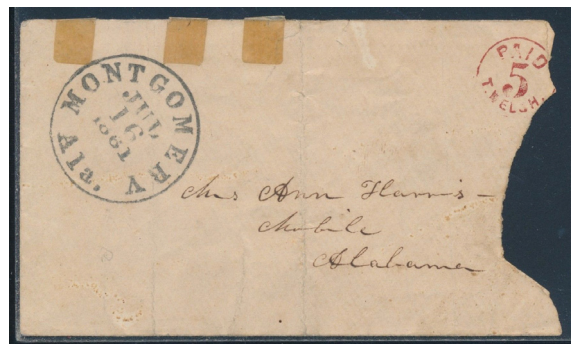 MONTGOMERY Ala.
JUL
16
1861
PAID
5
T.WELSH.
Mrs Ann Harris
Mobile
Alabama